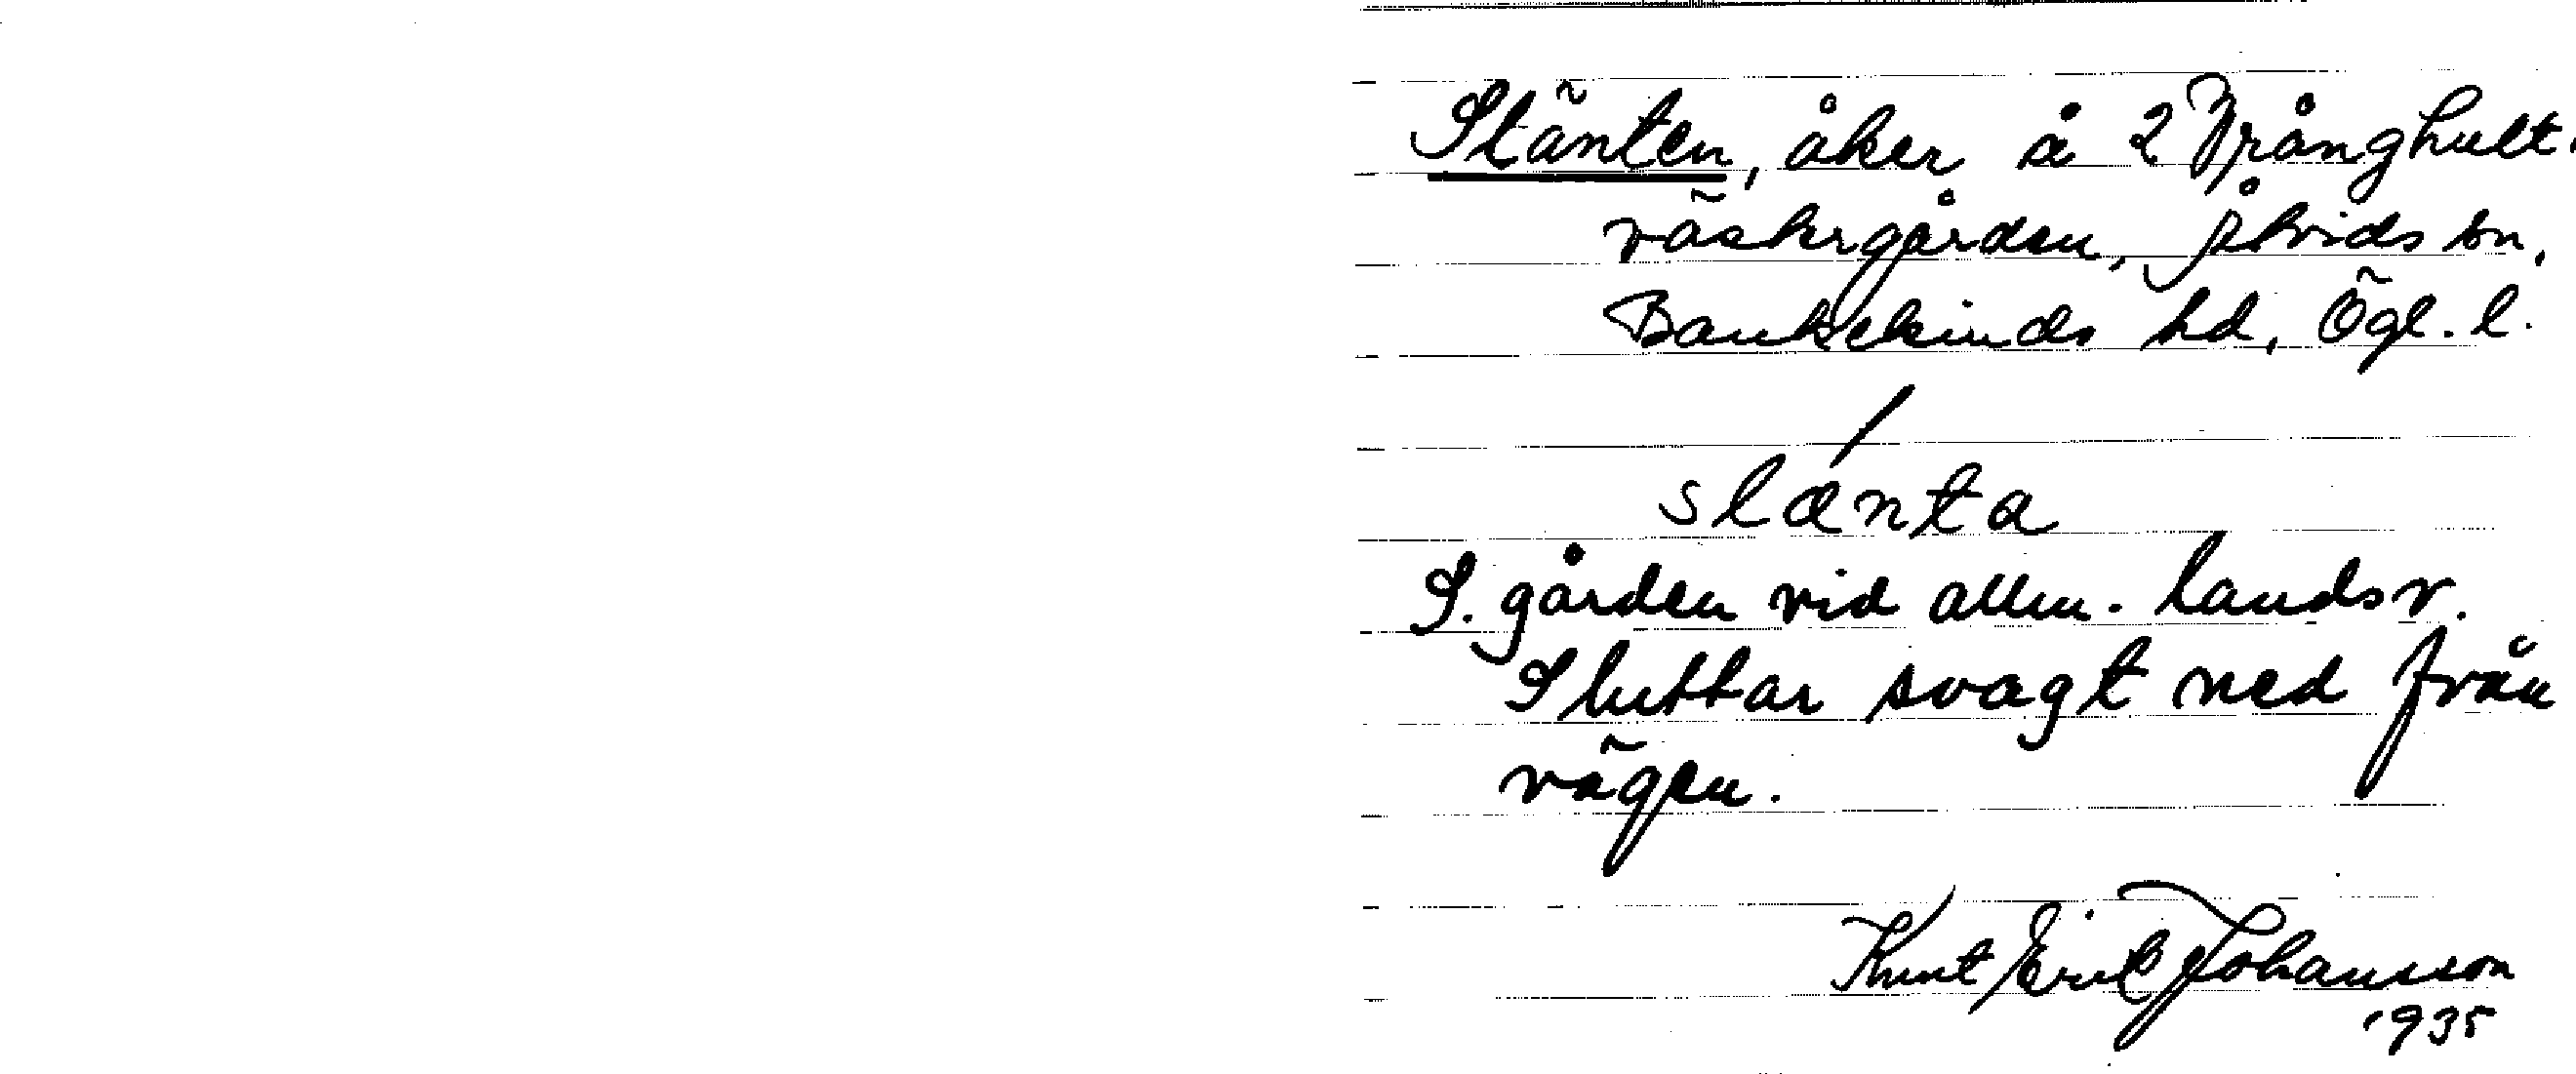 Slänten, åker å 2 Vrånghult
västergården, Åtvids sn,
Bankekinds hd, Ögl. l.
slánta
S. gården vid allm. landsv.
Sluttar svagt ned från
vägen.
Knut Erik Johansson
1935